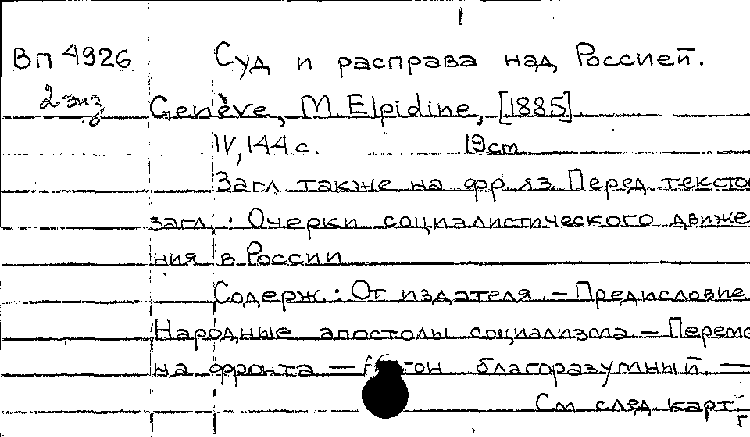 1
Вп 4926 Суд и расправа над Россией.
2 экз Genève, M. Elpidine, [1885]
IV, 144 с. 19 cm
Загл также на фр яз Перед тексто
загл.: Очерки социалистического движе
ния в России
Содерж.: От издателя. — Предисловие
Народные апостолы социализма — Переме
на фронта — благоразумный. —
См след карт